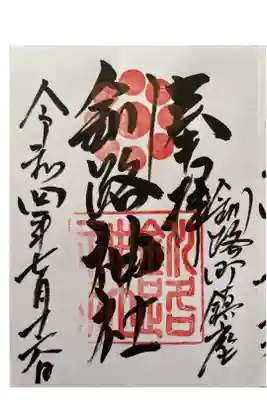 釧路町鎮座
奉拝
釧路神社
令和四年七月十六日